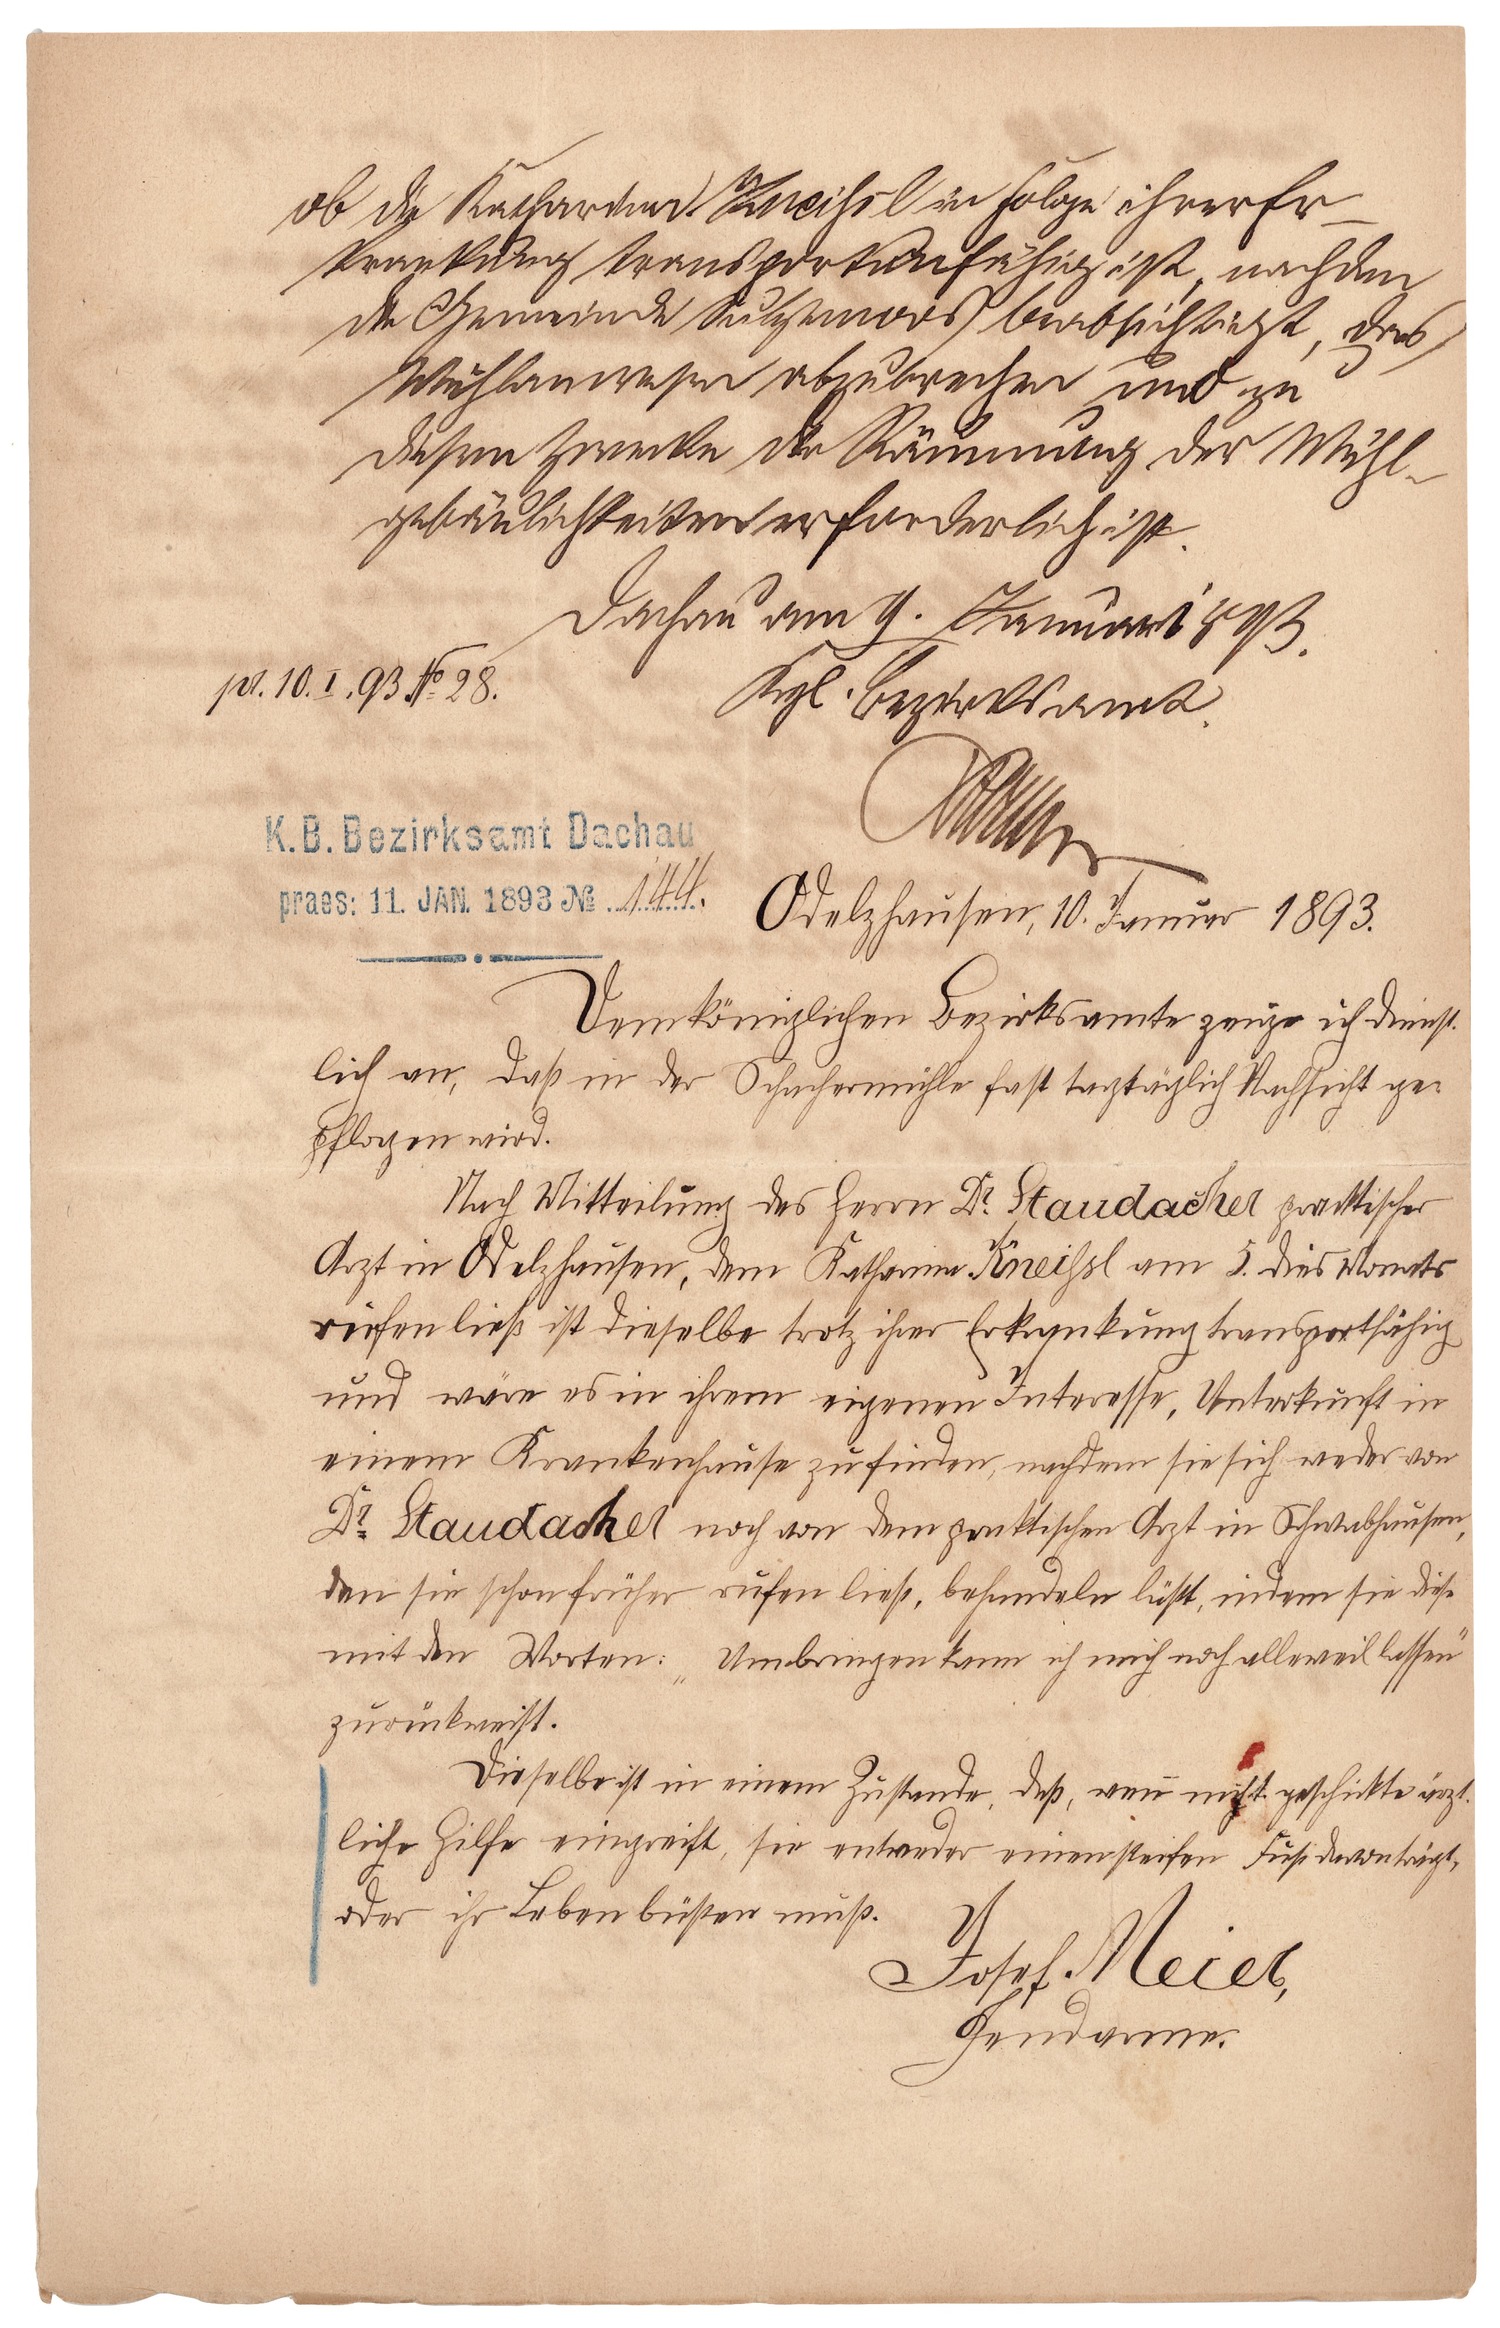 ob die Katharina Kneißl in Folge ihrer Er-
krankung transportunfähig ist, nachdem
die Gemeinde Sulzemoos beabsichtigt, das
Mühlanwesen abzubrechen und zu
diesem Zwecke die Räumung der Mühl-
gebäulichkeiten erforderlich ist.
Dachau am 9. Januar 1893.
pr. 10. I. 93 № 28.
Kgl. Bezirksamt.
K. B. Bezirksamt Dachau
praes: 11. JAN. 1893 № 144.
Odelzhausen, 10. Januar 1893.
Dem königlichen Bezirksamte zeige ich dienst-
lich an, daß in der Schachermühle fast tagtäglich Nachsicht ge-
pflogen wird.
Nach Mitteilung des Herrn Dr. Staudacher practischer
Arzt in Odelzhausen, dem Katharina Kneißl am 5. dies Monats
rufen ließ ist dieselbe trotz ihrer Erkrankung transportfähig
und wäre es in ihrem eigenen Interesse, Unterkunft in
einem Krankenhause zu finden, nachdem sie sich weder von
Dr. Staudacher noch von dem praktischen Arzt in Schwabhausen,
den sie schon früher rufen ließ, behandeln läßt, indem sie diese
mit den Worten: „Umbringen kann ich mich noch alleweil lassen"
zurückweist.
Dieselbe ist in einem Zustande, daß, wenn nicht geschickte ärzt-
liche Hilfe eingreift, sie entweder einen steifen Fuß davonträgt,
oder ihr Leben büßen muß.
Josef Meier,
Gendarme.